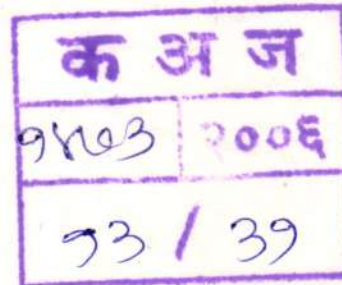 क अ ज
१४७३ २००६
१३ / ३१